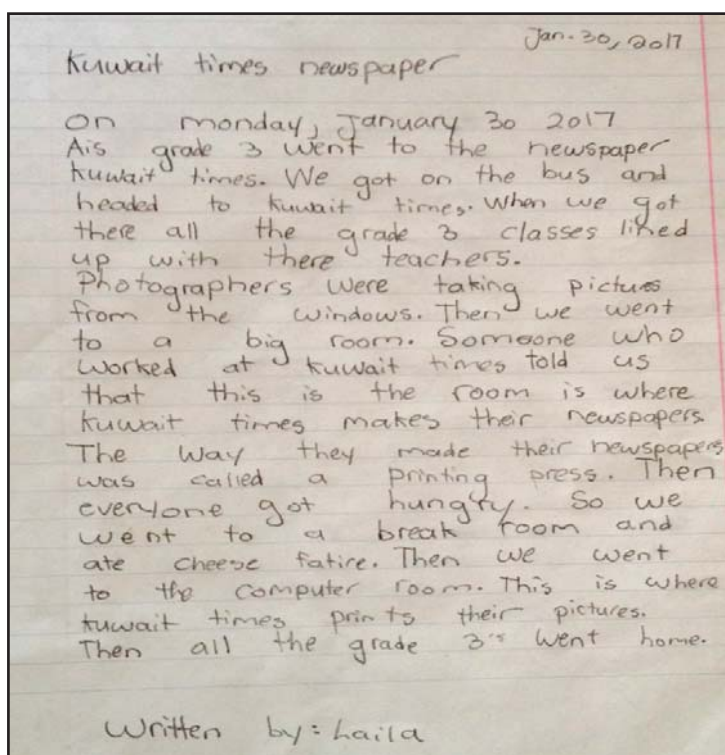 Jan. 30, 2017
Kuwait times newspaper
On monday, January 30 2017
Ais grade 3 went to the newspaper
kuwait times. We got on the bus and
headed to kuwait times. When we got
there all the grade 3 classes lined
up with there teachers.
Photographers were taking pictures
from the windows. Then we went
to a big room. Someone who
worked at kuwait times told us
that this is the room is where
kuwait times makes their newspapers
The way they made their newspapers
was called a printing press. Then
everyone got hungry. So we
went to a break room and
ate cheese fatire. Then we went
to the computer room. This is where
kuwait times prints their pictures.
Then all the grade 3's went home.
Written by: Laila